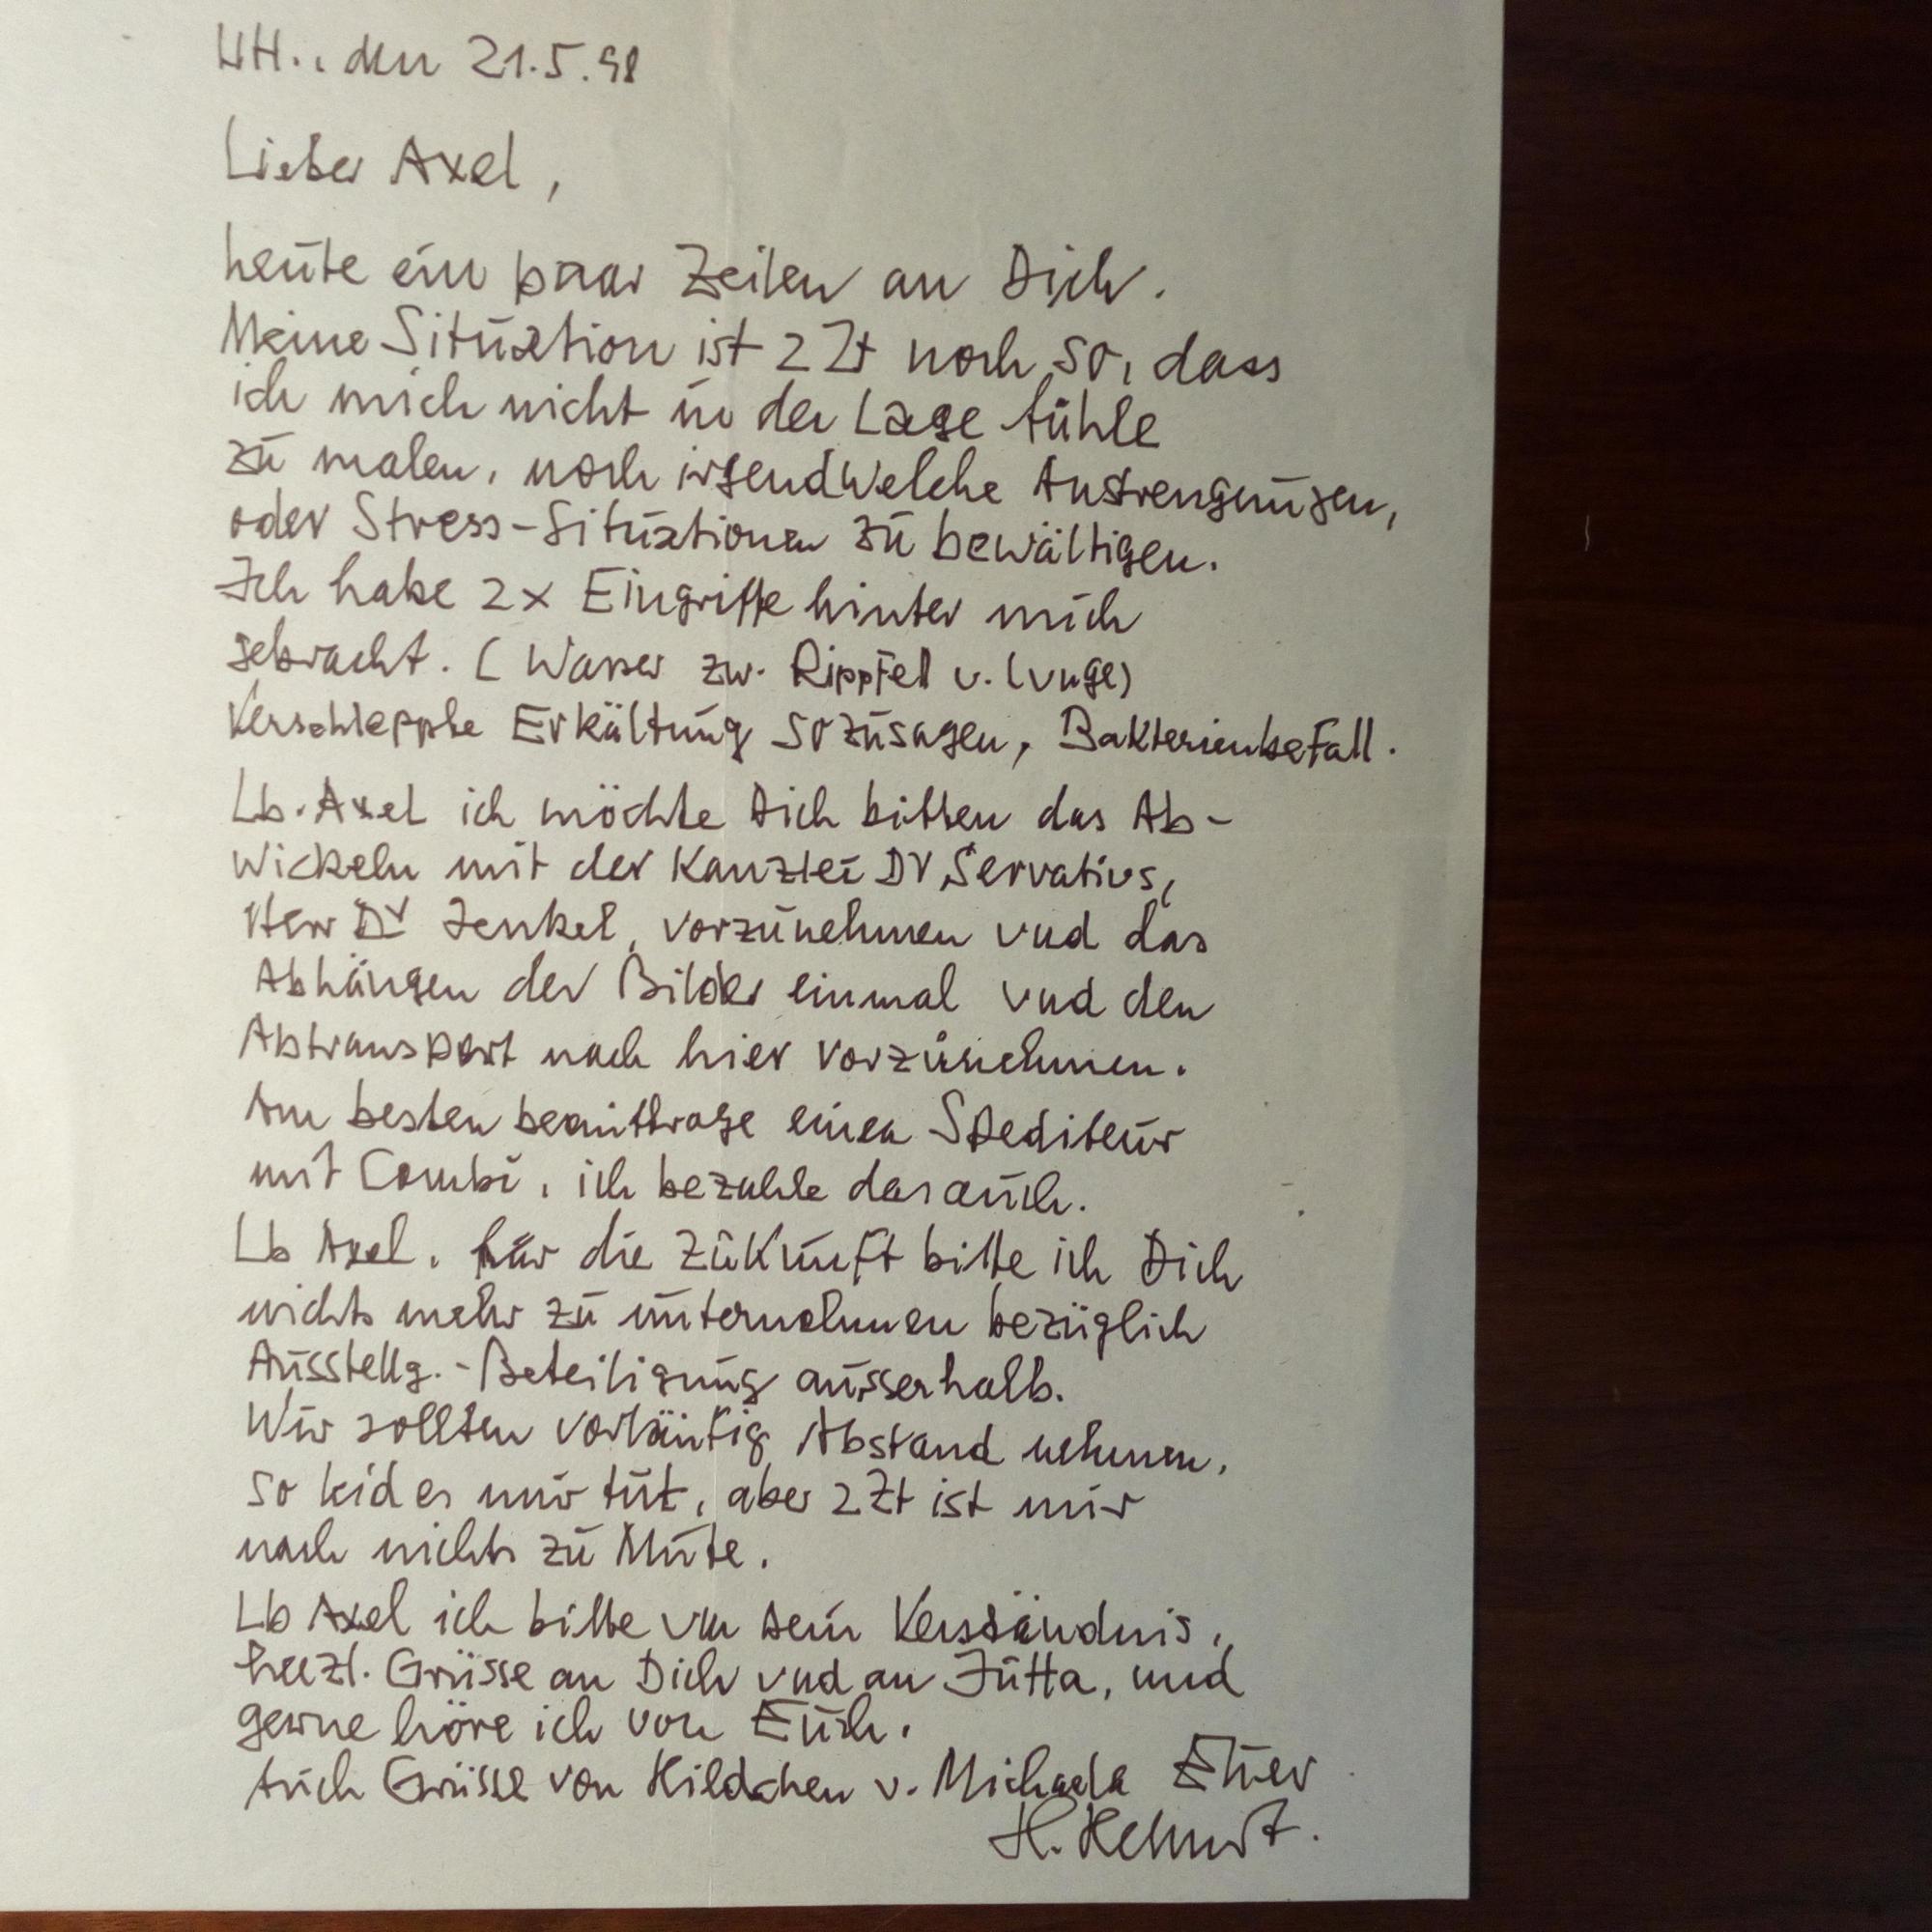 UH., den 21.5.98
Lieber Axel,
heute ein paar Zeilen an Dich.
Meine Situation ist z Zt noch so, dass
ich mich nicht in der Lage fühle
zu malen, noch irgendwelche Anstrengungen,
oder Stress-Situationen zu bewältigen.
Ich habe 2x Eingriffe hinter mich
gebracht. (Wasser zw. Rippfel u. Lunge)
Verschleppte Erkältung sozusagen, Bakterienbefall.
Lb. Axel ich möchte Dich bitten das Ab-
wickeln mit der Kanzlei Dr Servatius,
Herr Dr Jenkel, vorzunehmen und das
Abhängen der Bilder einmal und den
Abtransport nach hier vorzunehmen.
Am besten beauftrage einen Spediteur
mit Combi, ich bezahle das auch.
Lb Axel, für die Zukunft bitte ich Dich
nichts mehr zu unternehmen bezüglich
Ausstellg.-Beteiligung ausserhalb.
Wir sollten vorläufig Abstand nehmen,
so leid es mir tut, aber z Zt ist mir
nach nichts zu Mute.
Lb Axel ich bitte um Dein Verständnis,
herzl. Grüsse an Dich und an Jutta, und
gerne höre ich von Euch.
Auch Grüsse von Hildchen u. Michaela Euer
H.